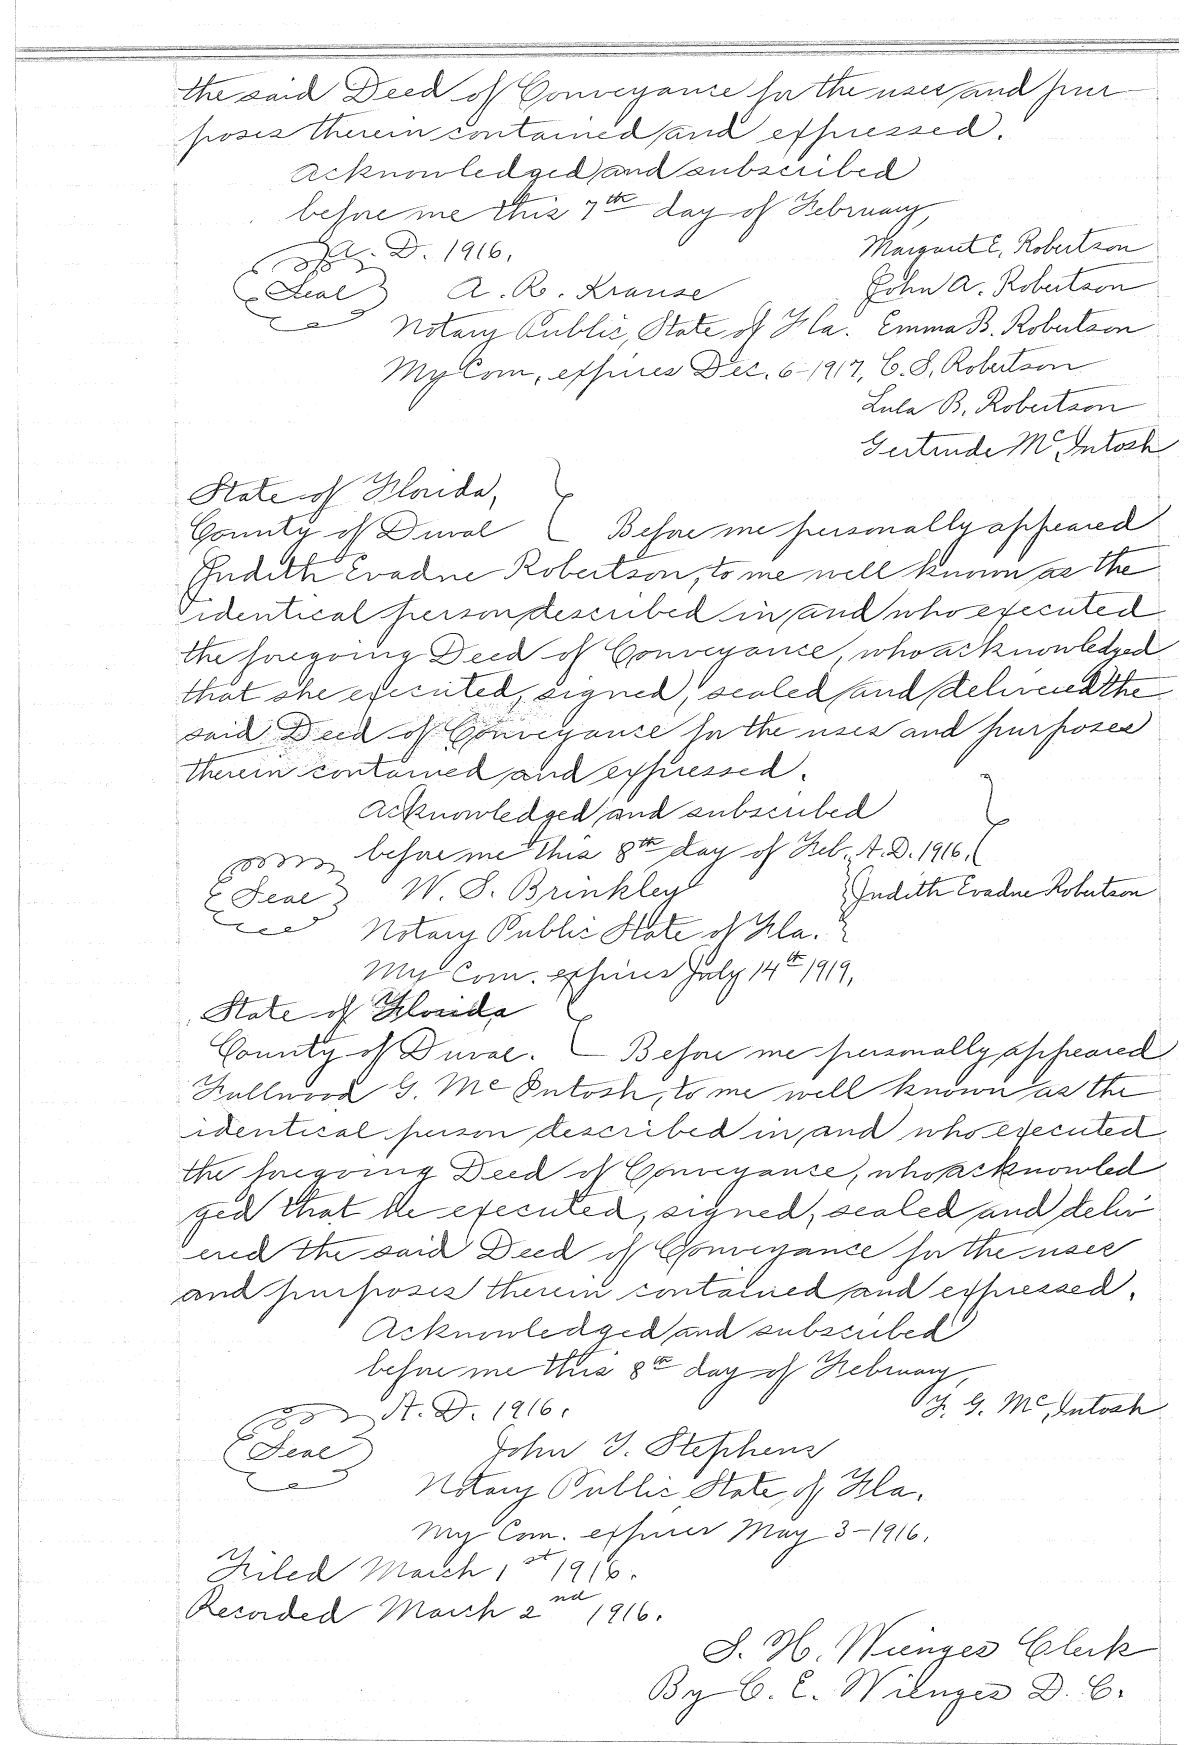 the said Deed of Conveyance for the uses and pur
poses therein contained and expressed.
Acknowledged and subscribed
before me this 7th day of February,
A. D. 1916.
Margaret E. Robertson
(Seal) A. R. Krause
John A. Robertson
Notary Public, State of Fla. Emma B. Robertson
My Com, expires Dec. 6-1917, C. S. Robertson
Lula B. Robertson
Gertrude McIntosh
State of Florida,
County of Duval Before me personally appeared
Judith Evadne Robertson, to me well known as the
identical person described in and who executed
the foregoing Deed of Conveyance, who acknowledged
that she executed, signed, sealed and delivered the
said Deed of Conveyance for the uses and purposes
therein contained and expressed.
Acknowledged and subscribed
before me this 8th day of Feb. A. D. 1916.
(Seal) W. S. Brinkley Judith Evadne Robertson
Notary Public State of Fla.
My Com. expires July 14th 1919,
State of Florida
County of Duval. Before me personally appeared
Fullwood G. McIntosh, to me well known as the
identical person described in and who executed
the foregoing Deed of Conveyance, who acknowled
ged that he executed, signed, sealed and deliv
ered the said Deed of Conveyance for the uses
and purposes therein contained and expressed.
Acknowledged and subscribed
before me this 8th day of February,
A. D. 1916. F. G. McIntosh
(Seal) John F. Stephens
Notary Public State of Fla.
My Com. expires May 3-1916.
Filed March 1st 1916.
Recorded March 2nd 1916.
S. H. Wienges Clerk
By C. E. Wienges D. C.